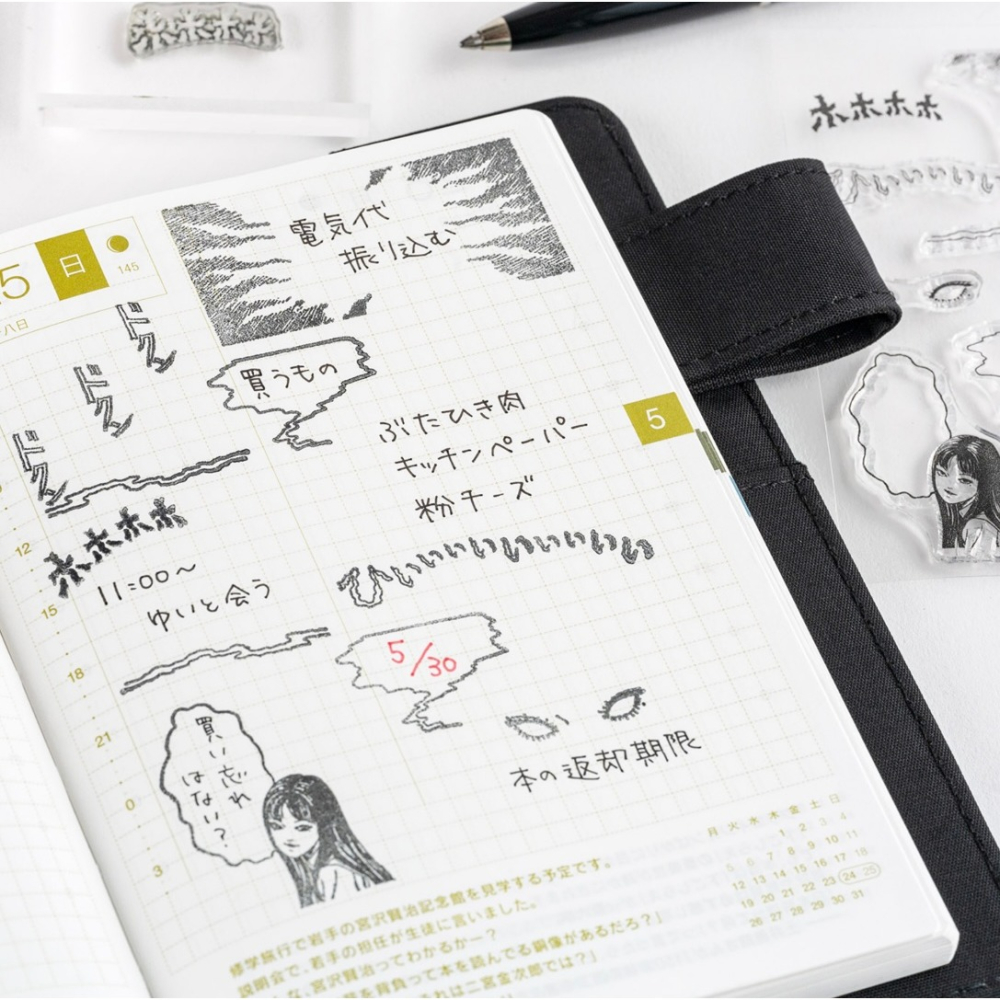 5 日
145
八日
電気代
振り込む
ドクン
ドクン
ドクン
買うもの
ぶたひき肉
キッチンペーパー
粉チーズ
5
ホホホホ
11:00～
ゆいと会う
ひぃぃぃぃぃぃぃぃぃ
5/30
本の返却期限
買い忘れ
はない?
12
15
18
21
0
3
月 火 水 木 金 土 日
1 2 3 4
5 6 7 8 9 10 11
12 13 14 15 16 17 18
19 20 21 22 23 24 25
26 27 28 29 30 31
修学旅行で岩手の宮沢賢治記念館を見学する予定です。
説明会で、若手の担任が生徒に言いました。
な、宮沢賢治ってわかるかー?
を背負って本を読んでる銅像があるだろ?」
それは二宮金次郎では?」
ホホホホ